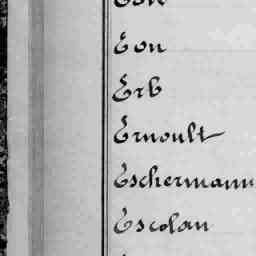 Eon
Erb
Ernoult
Eschermann
Escolan